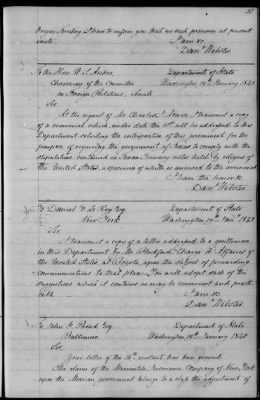 you that no such provision at present
exists.
I am &c.
Danl Webster.
To the Hon. W. S. Archer Department of State
Chairman of the Committee Washington, January 1843
on Foreign Relations, Senate
Sir,
At the request of Mr. Charles I transmit a copy
of a memorial which under date the was addressed to this
Department soliciting the interposition of this government for the
purpose of requiring the government of Texas to comply with the
stipulations contained in Texan Treasury notes held by citizens of
the United States, a specimen of which is annexed to the memorial
I have the honor &c
Danl Webster.
To Daniel Le Roy Esq Department of State
New York Washington 19th Jan. 1843
Sir,
I transmit a copy of a letter addressed to a gentleman
in this Department by Mr. Blackford Chargé d'Affaires of
the United States at Bogota upon the subject of forwarding
communications to that place. You will adopt such of the
suggestions which it contains as may be convenient and practi-
cable
I am &c.
Danl Webster.
To John Esq Department of State
Baltimore. Washington, 19th January 1843
Sir,
Your letter of the 14th instant has been received.
The claim of the Insurance Company of New York
upon the Mexican government the adjustment of